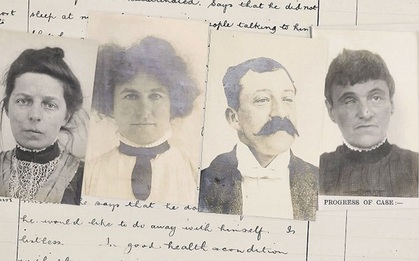 Says that he did not
sleep at n
people talking to him
PROGRESS OF CASE:—
he says that he do
he would like to do away with himself. Is
listless. In good health & condition